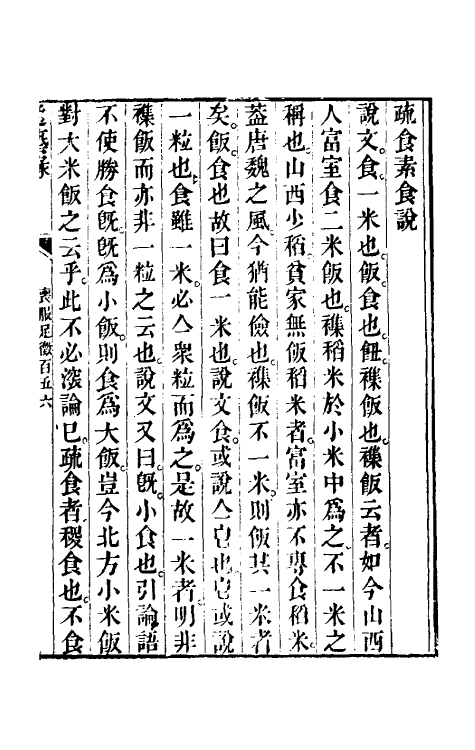 疏食素食說
說文。食。一米也。飯。食也。飪。襍飯也。襍飯云者。如今山西
人富室食二米飯也。襍稻米於小米中爲之。不一米之
稱也。山西少稻。貧家無飯稻米者。富室亦不專食稻米。
葢唐魏之風。今猶能儉也。襍飯不一米。則飯其一米者
矣。飯。食也。故曰食一米也。說文。食。或說亼皀也。皀。或說
一粒也。食雖一米。必亼衆粒而爲之。是故一米者。明非
襍飯。而亦非一粒之云也。說文又曰。旣。小食也。引論語
不使勝食旣。旣爲小飯。則食爲大飯。豈今北方小米飯
對大米飯之云乎。此不必深論已。疏食者。稷食也。不食
喪服足徵百五六